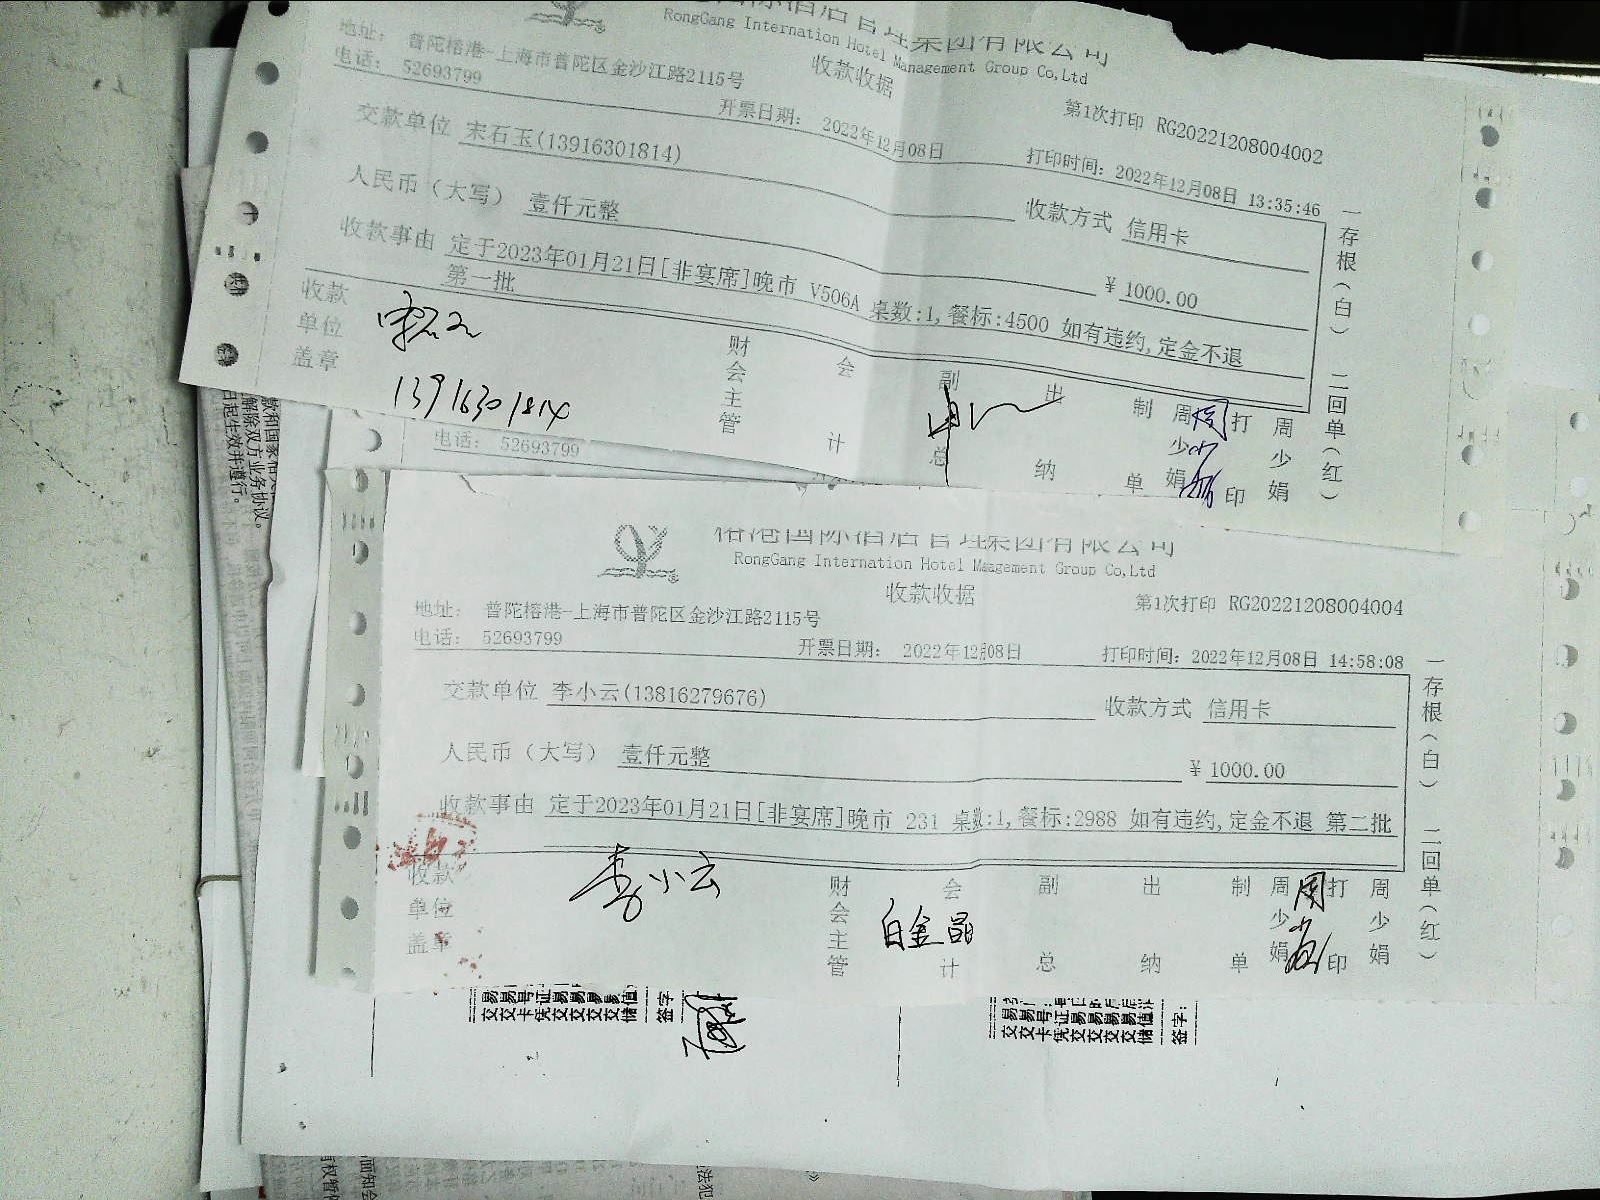 RongGang Internation Hotel Management Group Co,Ltd
收款收据
地址: 普陀榕港-上海市普陀区金沙江路2115号
电话: 52693799
开票日期: 2022年12月08日
第1次打印 RG20221208004002
打印时间: 2022年12月08日 13:35:46
交款单位 宋石玉(13916301814)
收款方式 信用卡
人民币（大写） 壹仟元整
¥ 1000.00
收款事由 定于2023年01月21日[非宴席]晚市 V506A 桌数:1,餐标:4500 如有违约,定金不退
第一批
收款单位盖章
13916301814
财会主管
会计
副总
出纳
制单
周少娟
打印
周少娟
一存根(白) 二回单(红)
电话: 52693799
榕港国际酒店管理集团有限公司
RongGang Internation Hotel Management Group Co,Ltd
收款收据
第1次打印 RG20221208004004
地址: 普陀榕港-上海市普陀区金沙江路2115号
电话: 52693799
开票日期: 2022年12月08日
打印时间: 2022年12月08日 14:58:08
交款单位 李小云(13816279676)
收款方式 信用卡
人民币（大写） 壹仟元整
¥ 1000.00
收款事由 定于2023年01月21日[非宴席]晚市 231 桌数:1,餐标:2988 如有违约,定金不退 第二批
收款单位盖章
李小云
财会主管
会计
白金晶
副总
出纳
制单
周少娟
打印
周少娟
一存根(白) 二回单(红)
解除双方业务协议。
日起生效并遵行。
签字
签字: